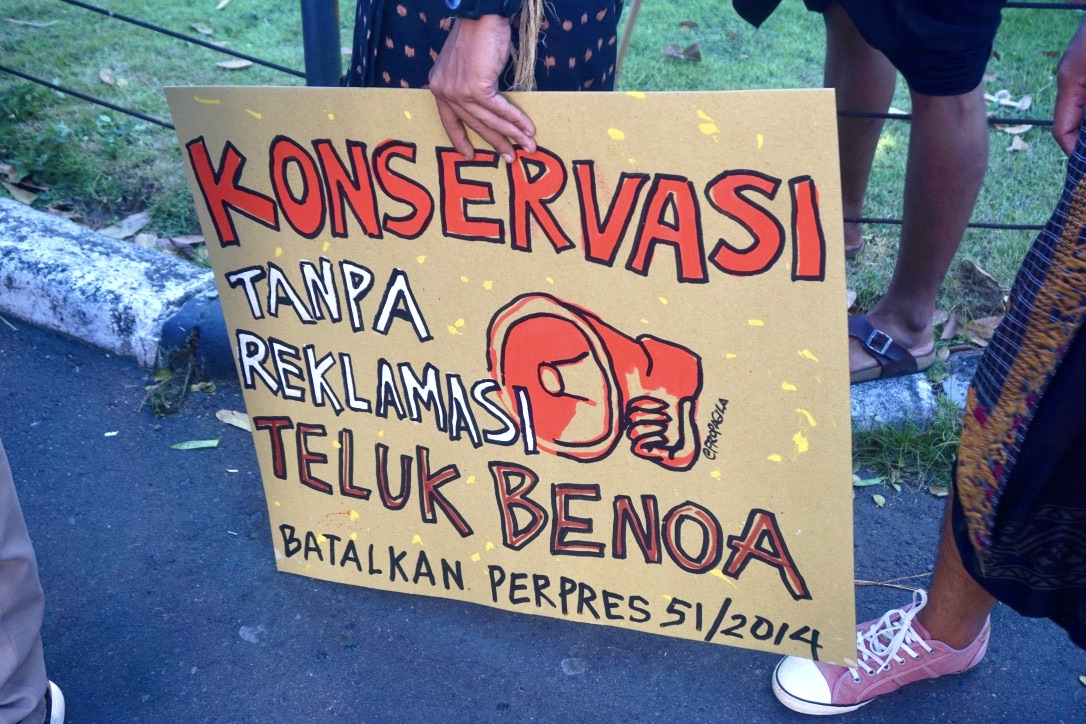 KONSERVASI
TANPA
REKLAMASI
TELUK BENOA
BATALKAN PERPRES 51/2014